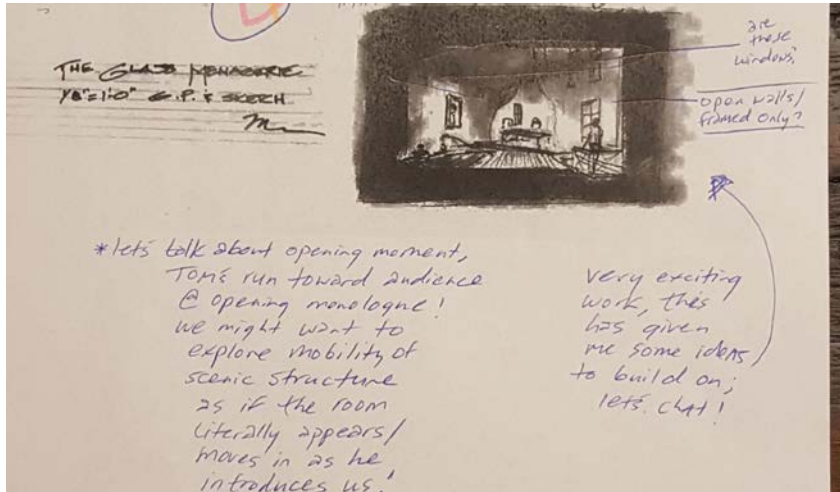 THE GLASS MENAGERIE
1/8"=1'-0" G.P. & SKETCH
are
these
windows?
open walls/
framed only?
*lets talk about opening moment,
TOM'S run toward audience
@ opening monologue!
we might want to
explore mobility of
scenic structure
as if the room
literally appears/
moves in as he
introduces us!
very exciting
work, this
has given
me some ideas
to build on;
lets chat!